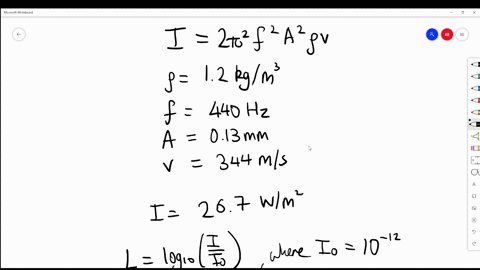 Microsoft Whiteboard
I = 2π² f² A² ρv
ρ = 1.2 kg/m³
f = 440 Hz
A = 0.13 mm
v = 344 m/s
I = 26.7 W/m²
L = log₁₀(I/I₀), where I₀ = 10⁻¹²